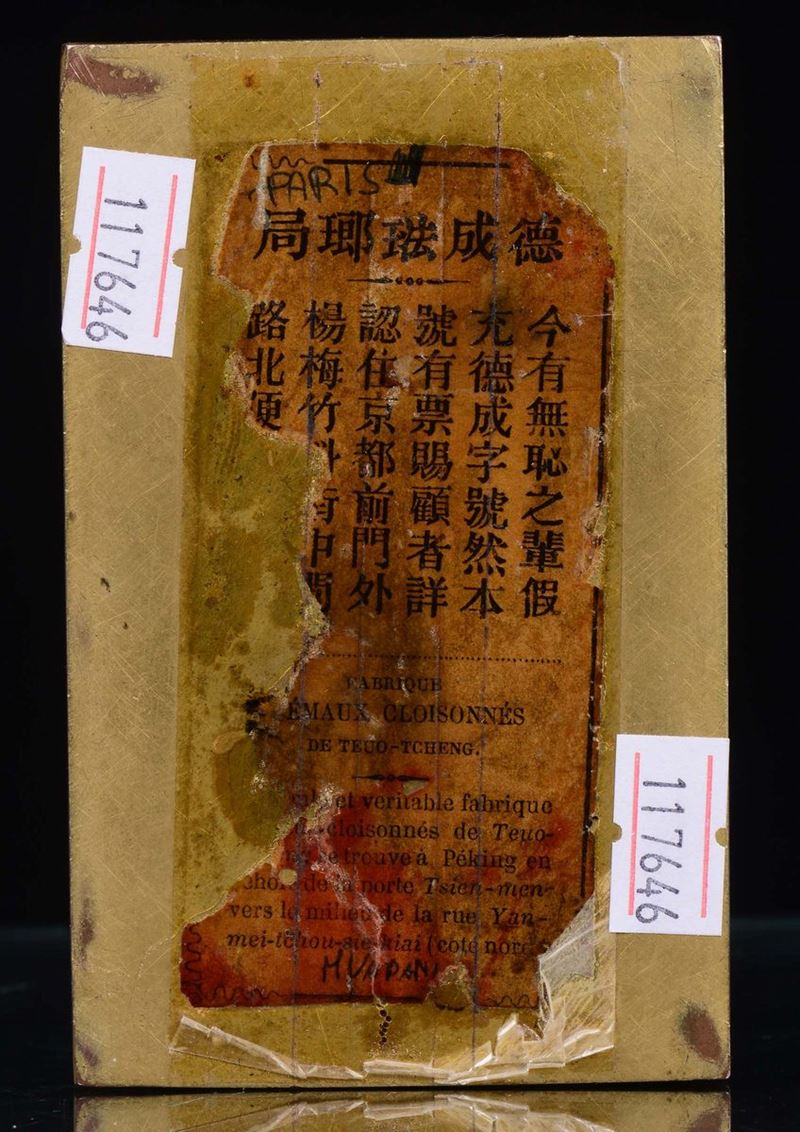 PARIS
德成琺瑯局
今有無恥之輩假
充德成字號然本
號有票賜顧者詳
認住京都前門外
楊梅竹斜街中間
路北便
FABRIQUE
ÉMAUX CLOISONNÉS
DE TEUO-TCHENG.
et veritable fabrique
cloisonnés de Teuo-
se trouve à Péking en
dehors de la porte Tsien-men-
vers le milieu de la rue Yan-
mei-tchou-sie-kiai (coté nord
117646
117646